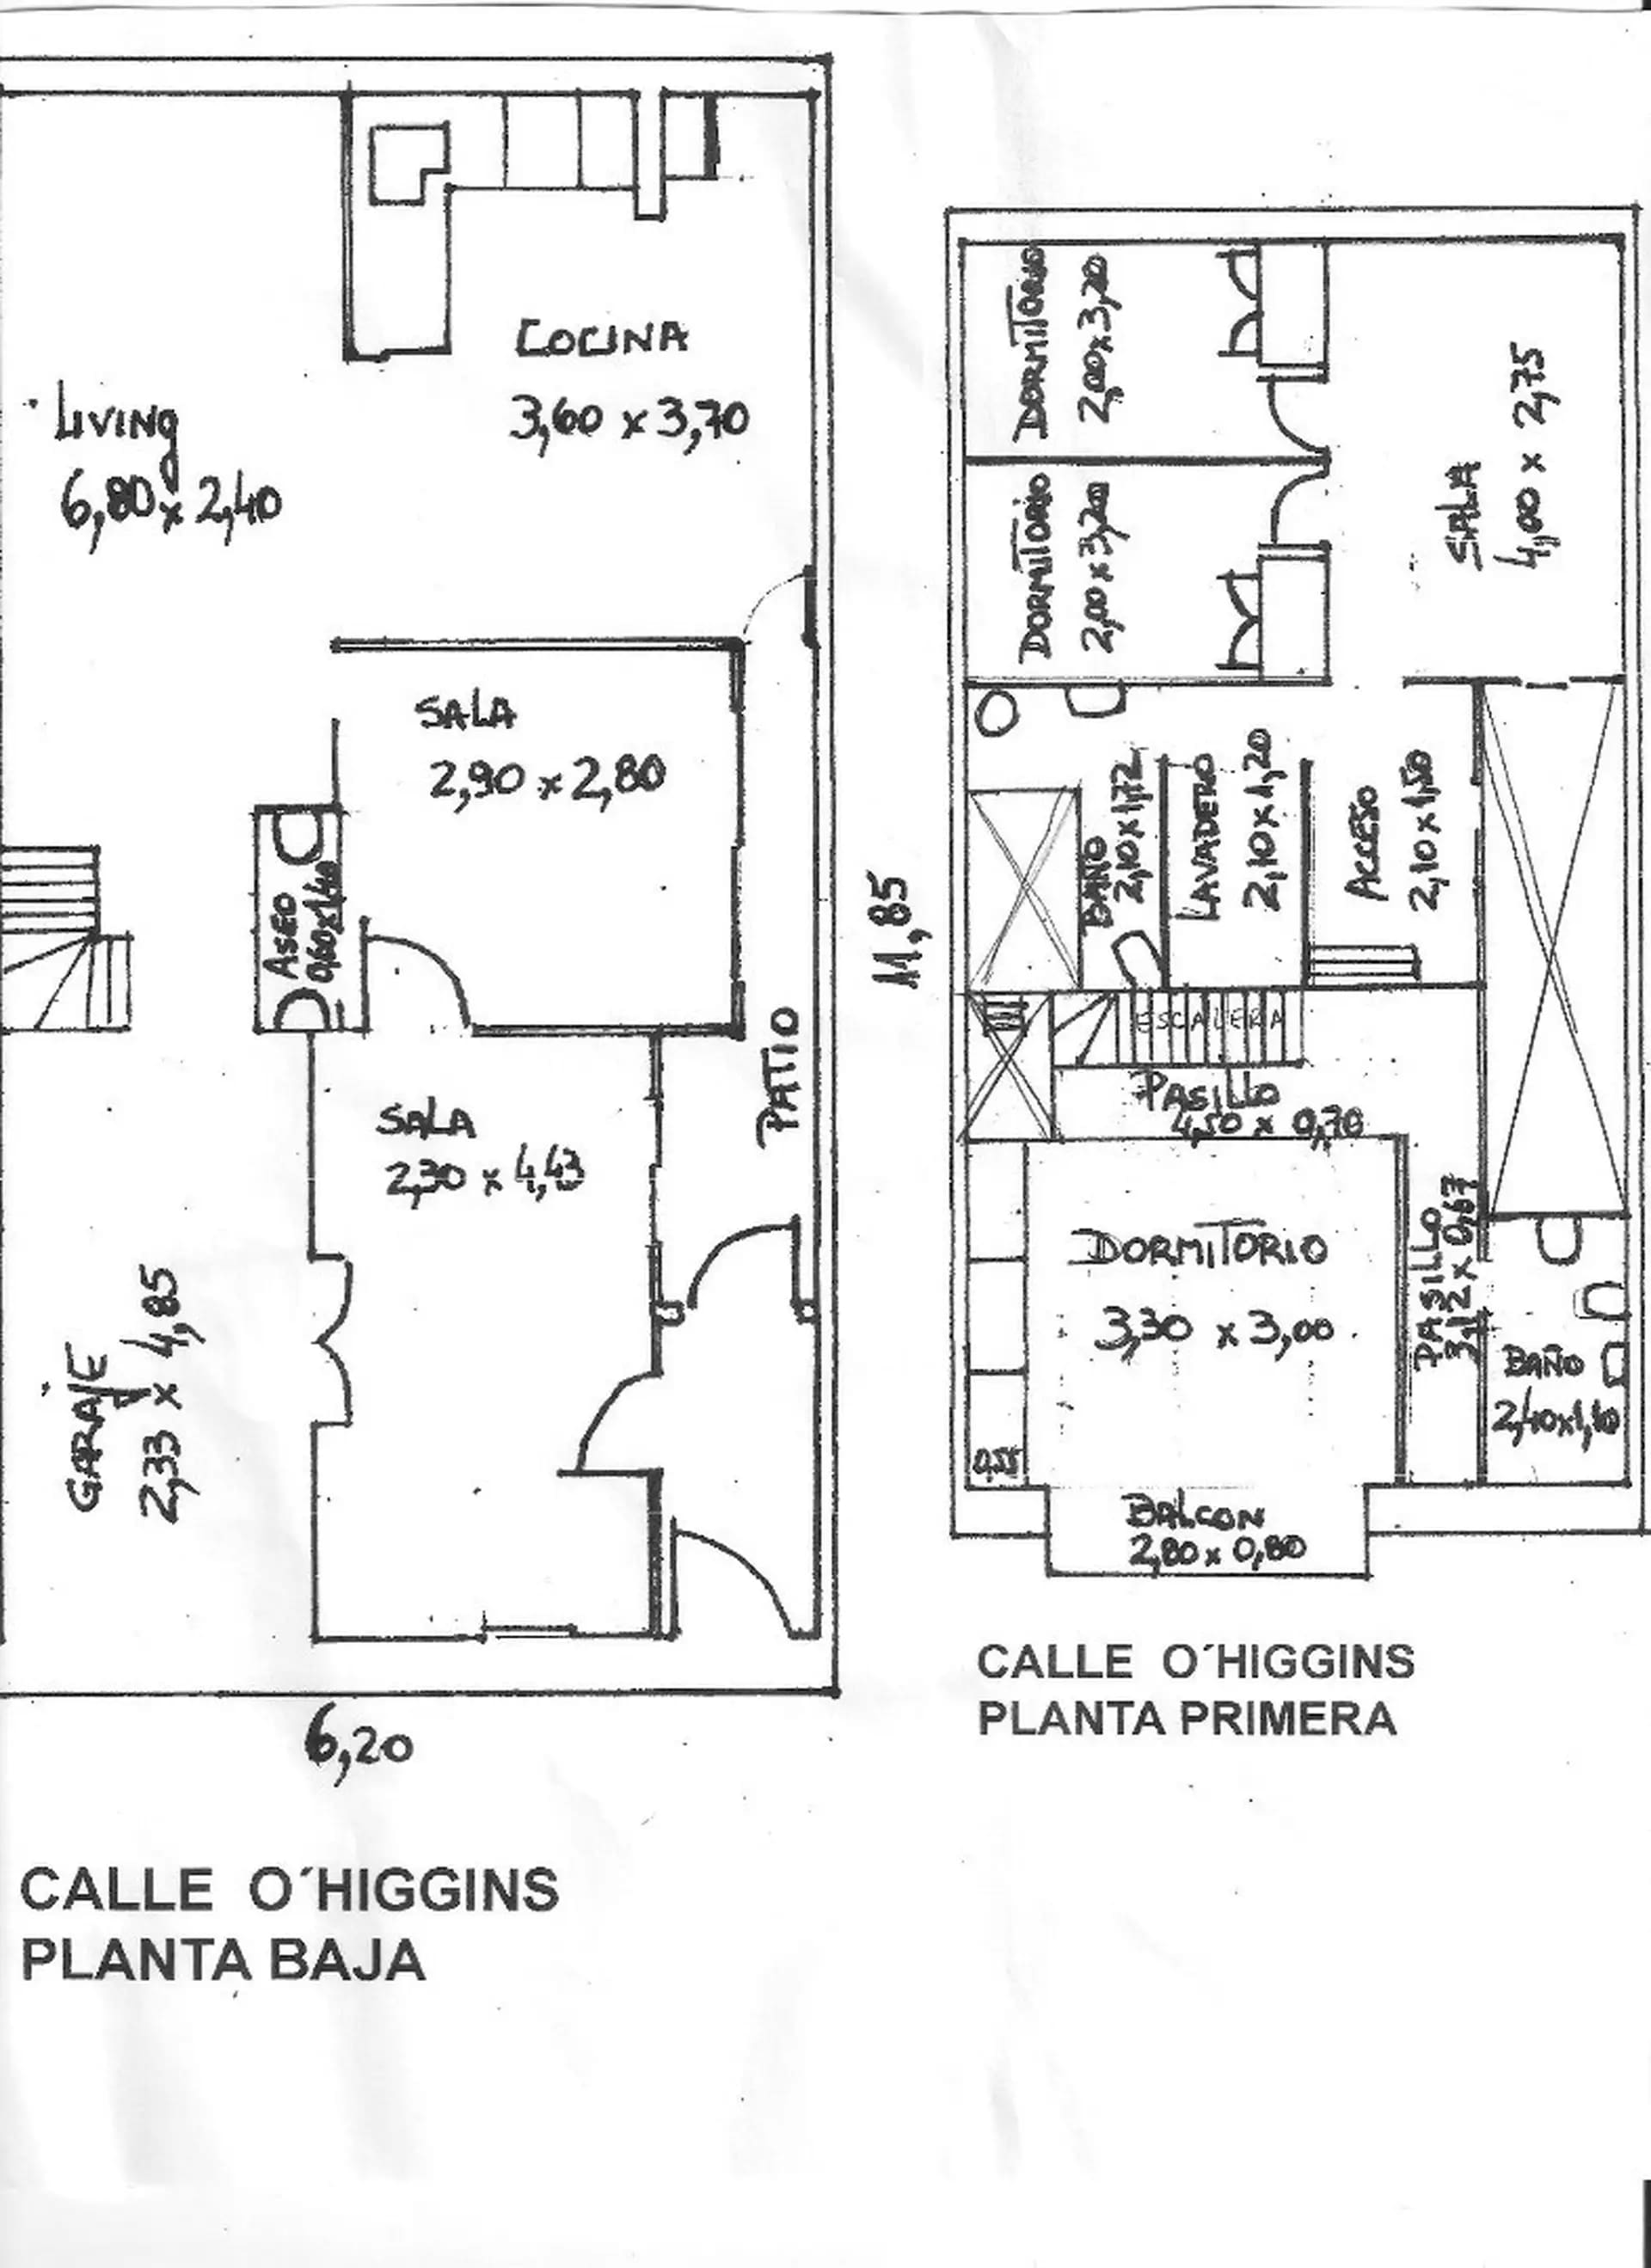 LIVING
6,80 x 2,40
COCINA
3,60 x 3,70
SALA
2,90 x 2,80
ASEO
0,60x1,40
SALA
2,30 x 4,43
PATIO
GARAJE
2,33 x 4,85
11,85
6,20
CALLE O´HIGGINS
PLANTA BAJA
DORMITORIO
2,00x3,20
DORMITORIO
2,00x3,20
SALA
4,00 x 2,75
BAÑO
2,10x1,72
LAVADERO
2,10x1,20
ACCESO
2,10x1,50
ESCALERA
PASILLO
4,50 x 0,70
DORMITORIO
3,30 x 3,00
PASILLO
3,12 x 0,67
BAÑO
2,40x1,10
BALCON
2,80x 0,80
CALLE O´HIGGINS
PLANTA PRIMERA